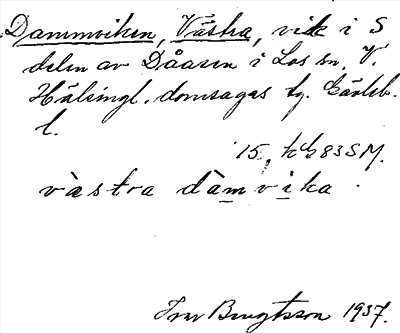 Dammviken, Västra, vik i S
delen av Dåasen i Los sn. V.
Hälsingl. domsagas tg. Gävleb.
l.
15, kG83SM.
vàstra dàmvika.
Ivar Bengtsson 1937.